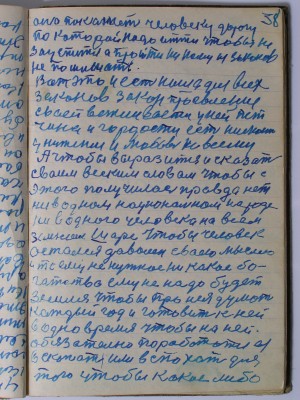 58
она покажет человеку дорогу
по которой надо итти чтобы не
и пройти ни кому из законов
не помешать.
Вот это и есть никогда всех
законов закон проявление
своей вежливости у ней нет
чина и гордости есть
унижение и любовь ко всему
А чтобы выразится и сказать
своим веским словам чтобы с
этого получилась правда нет
ни водном национальном народе
ни водного человека на всем
земном шаре чтобы человек
остался доволен своею мыслею
ему не нужное ни какое бо-
гатства ему не надо будет
земля чтобы про неё думать
каждый год и готовить к ней
водно время чтобы на ней.
обязательно поработать
вскопать или вспохать для
того чтобы какое либо